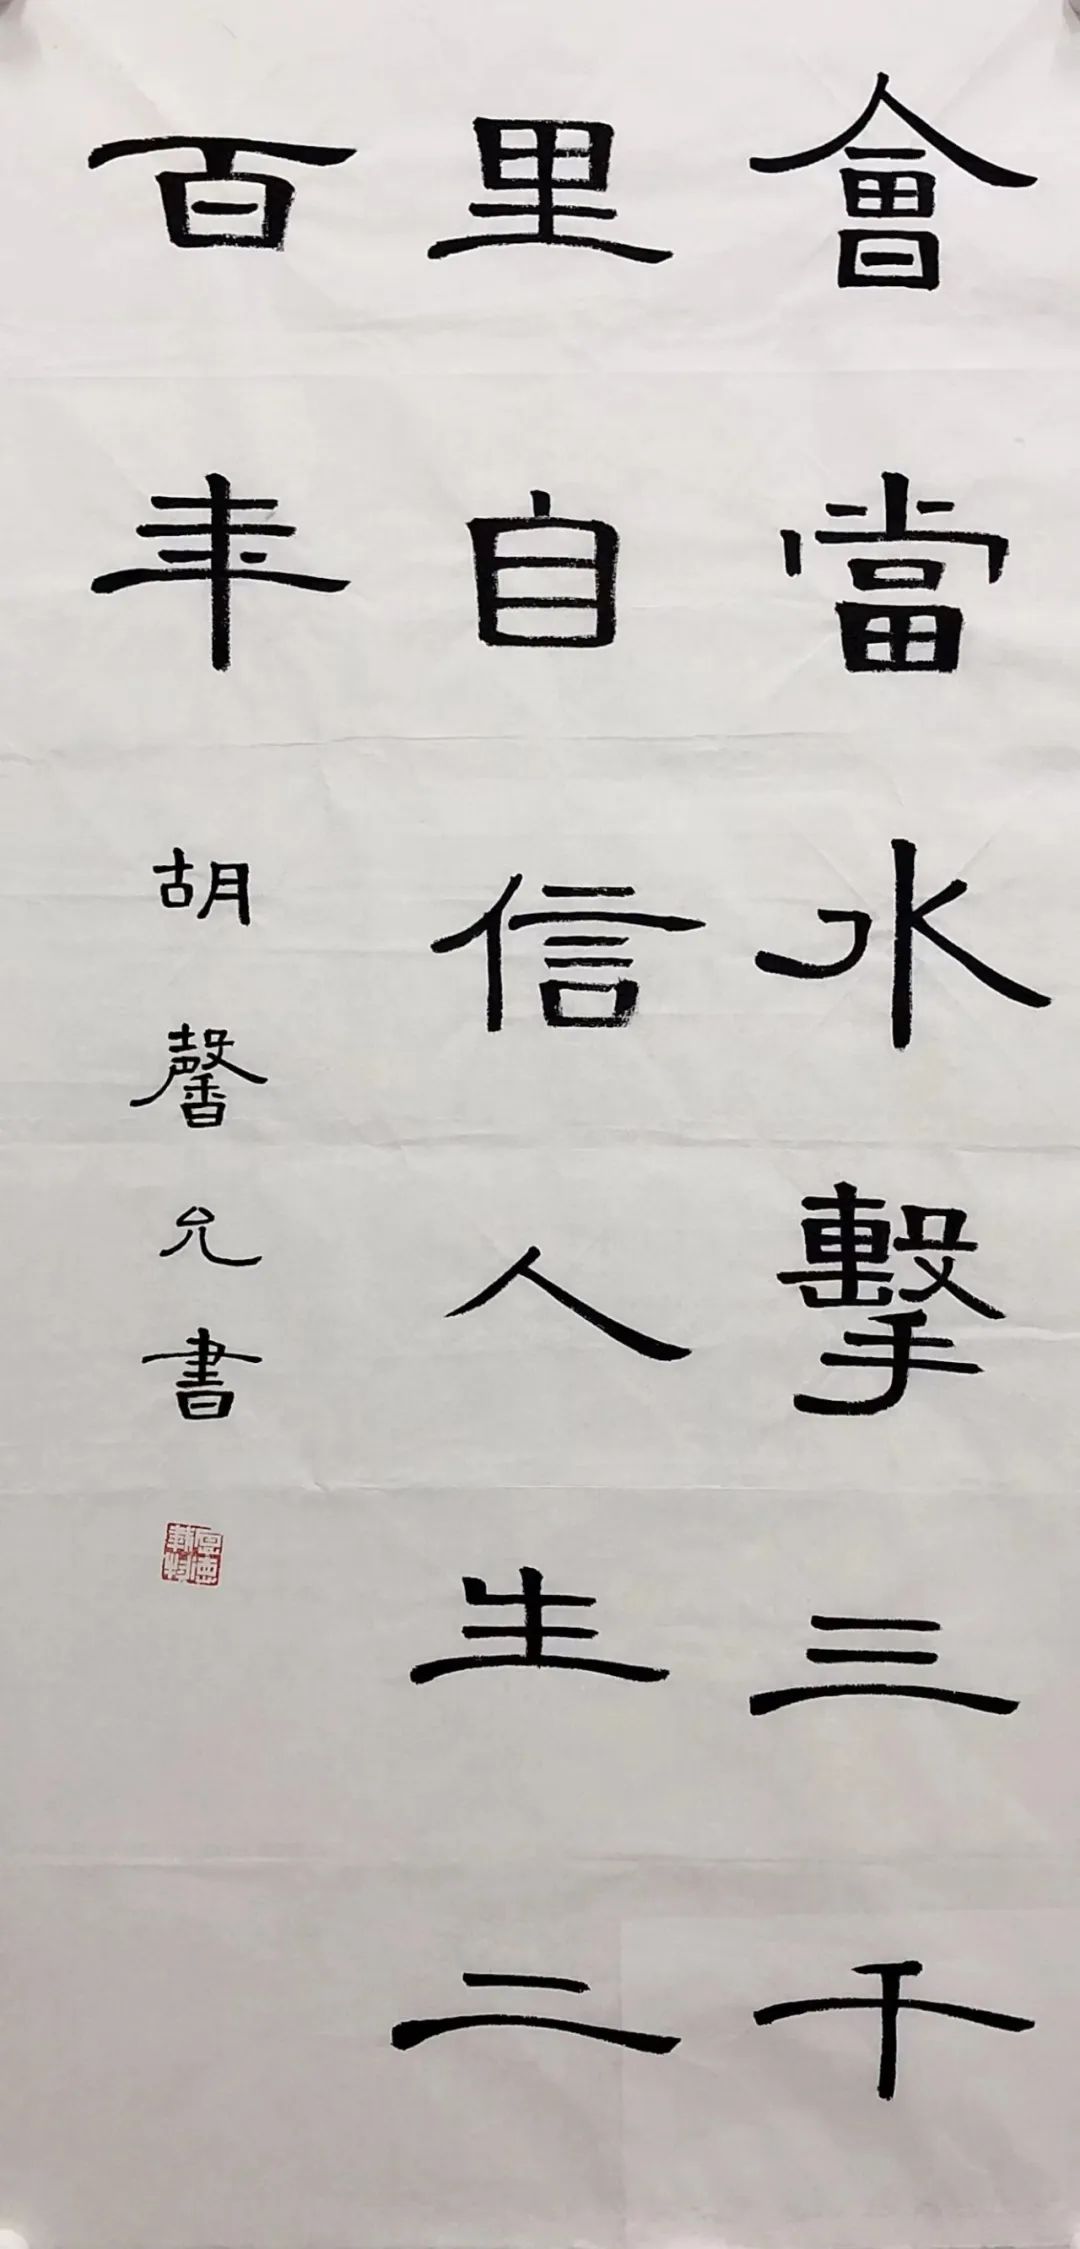 會當水擊三千
里自信人生二
百年
胡馨允書
厚德載物